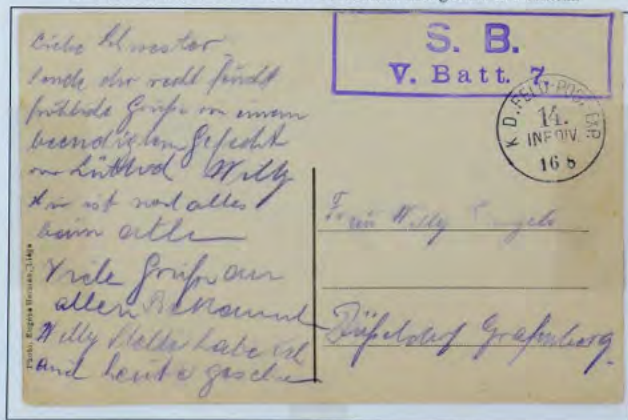 S. B.
V. Batt. 7
K. D. FELD-POSTEXP.
14.
INF DIV.
16 8
Liebe Schwester,
sende dir recht
fröhliche Grüße von einem
beendigten Gefecht
vor Lüttich Willy
hier ist noch alles
beim alten
Viele Grüße an
allen Bekannt
Willy habe ich
auch heute gesehen
Frau Willy
Düsseldorf Grafenberg.
Photo. Eugène Herman, Liége